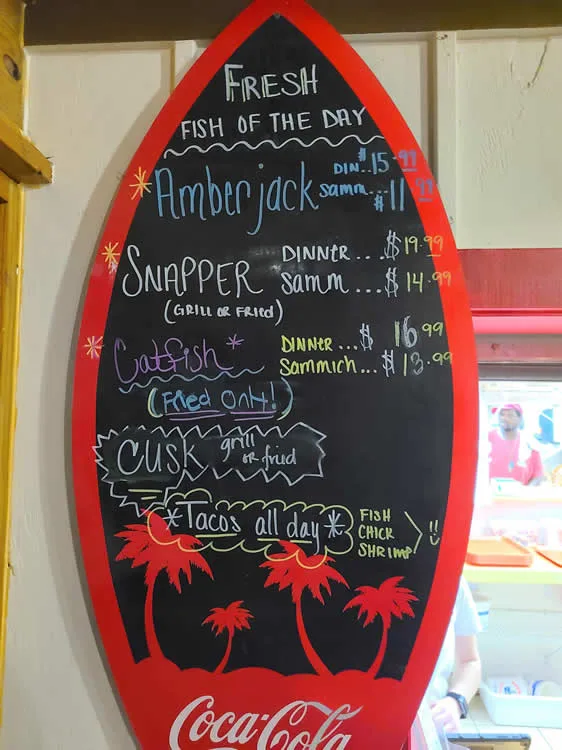 FRESH
FISH OF THE DAY
Amberjack DIN..$15.99
samm...$11.99
SNAPPER DINNER...$19.99
(GRILL OR FRIED) samm...$14.99
Catfish* DINNER...$16.99
(Fried Only!) Sammich...$13.99
CUSK grill
OR fried
*Tacos all day* FISH
CHICK
SHRIMP
Coca-Cola